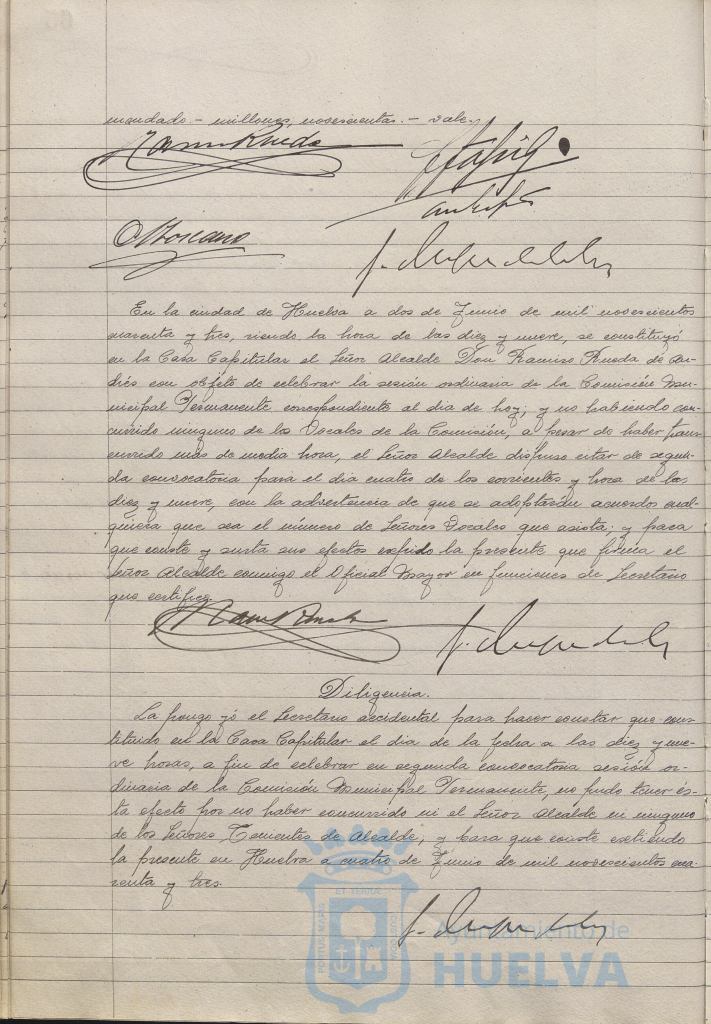 mandado.- millones, novecientas.- vale.
Ramiro Rueda
O Toscano
En la ciudad de Huelva a dos de Junio de mil novecientos
cuarenta y tres, siendo la hora de las diez y nueve, se constituyó
en la Casa Capitular el Señor Alcalde Don Ramiro Rueda de An-
drés con objeto de celebrar la sesión ordinaria de la Comisión Mu-
nicipal Permanente correspondiente al dia de hoy; y no habiendo con-
currido ninguno de los Vocales de la Comisión, a pesar de haber trans-
currido más de media hora, el Señor Alcalde dispuso citar de segun-
da convocatoria para el dia cuatro de los corrientes y hora de las
diez y nueve, con la advertencia de que se adoptarán acuerdos cual-
quiera que sea el número de Señores Vocales que asista. y para
que conste y surta sus efectos expido la presente que firma el
Señor Alcalde conmigo el Oficial Mayor en funciones de Secretario
que certifico.
Diligencia.
La pongo yó el Secretario accidental para hacer constar que cons-
tituido en la Casa Capitular el dia de la fecha a las diez y nue-
ve horas, a fin de celebrar en segunda convocatoria sesión or-
dinaria de la Comisión Municipal Permanente, no pudo tener és-
ta efecto por no haber concurrido ni el Señor Alcalde ni ninguno
de los Señores Tenientes de Alcalde, y para que conste extiendo
la presente en Huelva a cuatro de Junio de mil novecientos cua-
renta y tres.
Ayuntamiento de
HUELVA